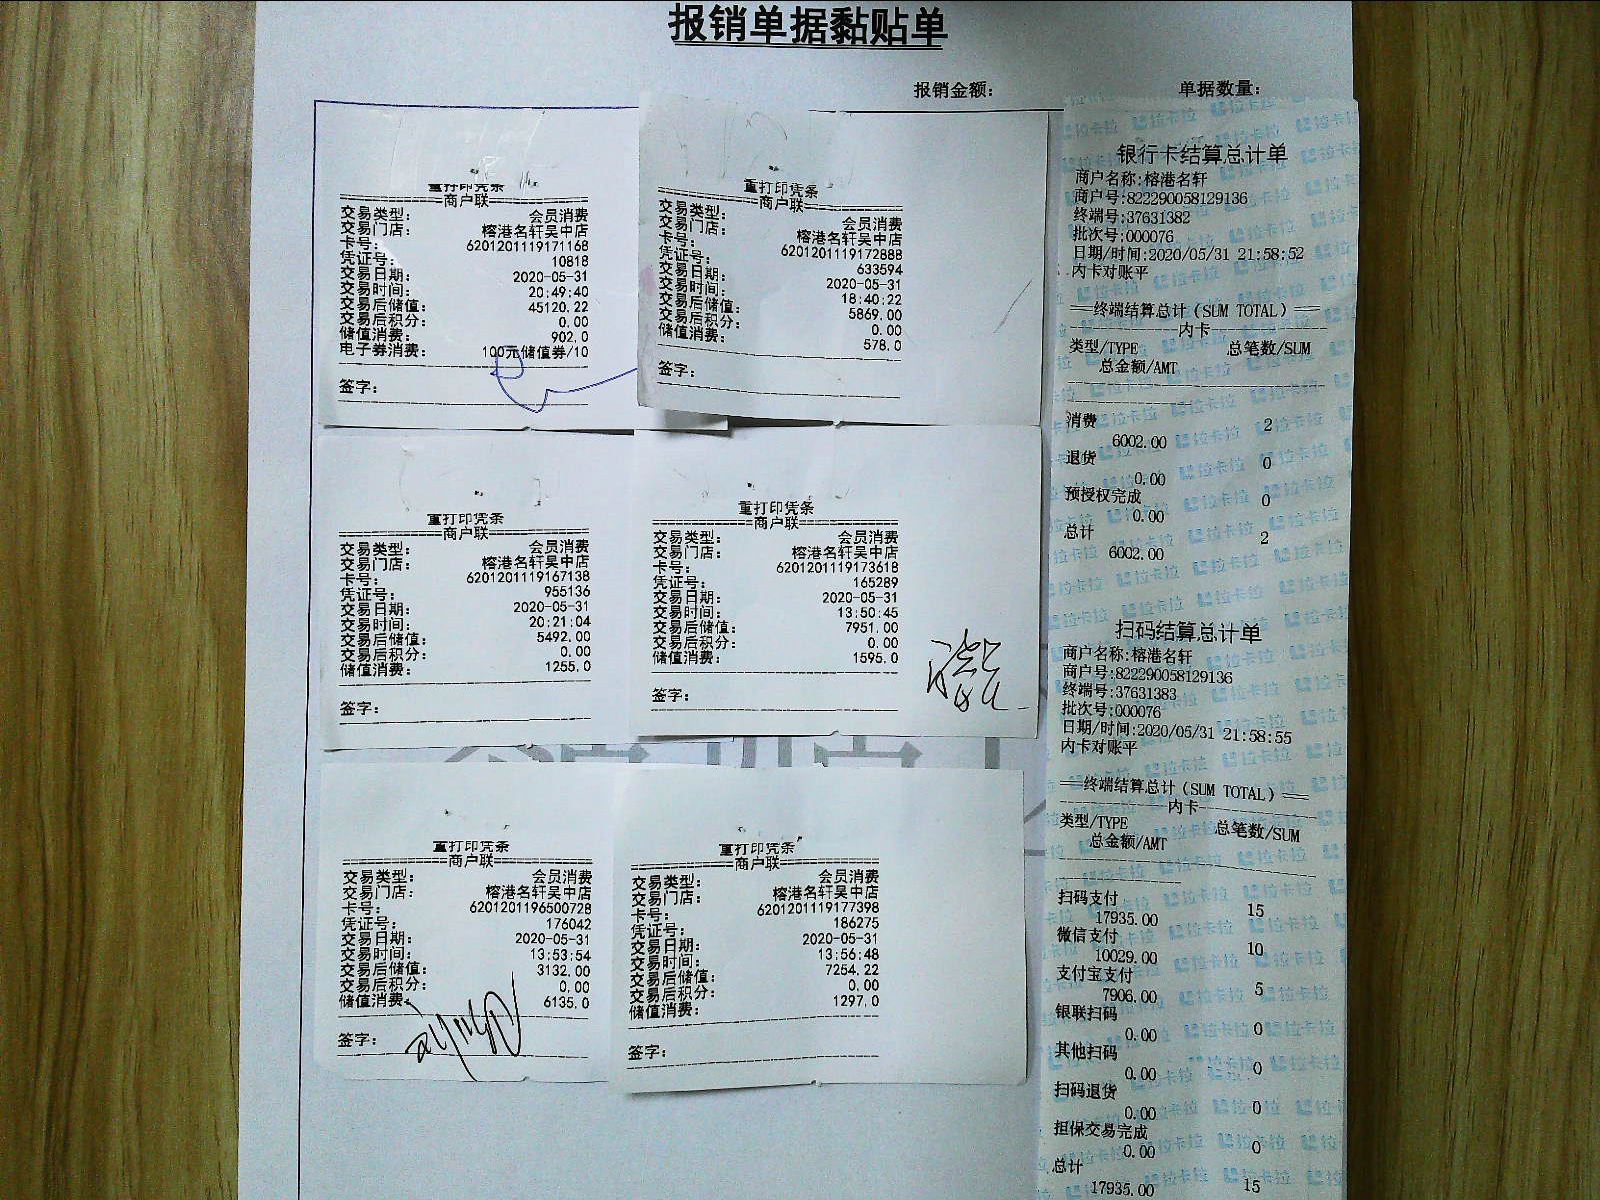 报销单据黏贴单
报销金额： 单据数量：
重打印凭条
商户联
交易类型： 会员消费
交易门店： 榕港名轩吴中店
卡号： 6201201119171168
凭证号： 10818
交易日期： 2020-05-31
交易时间： 20:49:40
交易后储值： 45120.22
交易后积分： 0.00
储值消费： 902.0
电子券消费： 100元储值券/10
签字：
重打印凭条
商户联
交易类型： 会员消费
交易门店： 榕港名轩吴中店
卡号： 6201201119172888
凭证号： 633594
交易日期： 2020-05-31
交易时间： 18:40:22
交易后储值： 5869.00
交易后积分： 0.00
储值消费： 578.0
签字：
重打印凭条
商户联
交易类型： 会员消费
交易门店： 榕港名轩吴中店
卡号： 6201201119167138
凭证号： 955136
交易日期： 2020-05-31
交易时间： 20:21:04
交易后储值： 5492.00
交易后积分： 0.00
储值消费： 1255.0
签字：
重打印凭条
商户联
交易类型： 会员消费
交易门店： 榕港名轩吴中店
卡号： 6201201119173618
凭证号： 165289
交易日期： 2020-05-31
交易时间： 13:50:45
交易后储值： 7951.00
交易后积分： 0.00
储值消费： 1595.0
签字：
重打印凭条
商户联
交易类型： 会员消费
交易门店： 榕港名轩吴中店
卡号： 6201201196500728
凭证号： 176042
交易日期： 2020-05-31
交易时间： 13:53:54
交易后储值： 3132.00
交易后积分： 0.00
储值消费： 6135.0
签字：
重打印凭条
商户联
交易类型： 会员消费
交易门店： 榕港名轩吴中店
卡号： 6201201119177398
凭证号： 186275
交易日期： 2020-05-31
交易时间： 13:56:48
交易后储值： 7254.22
交易后积分： 0.00
储值消费： 1297.0
签字：
银行卡结算总计单
商户名称:榕港名轩
商户号:822290058129136
终端号:37631382
批次号:000076
日期/时间:2020/05/31 21:58:52
内卡对账平
终端结算总计(SUM TOTAL)
内卡
类型/TYPE 总笔数/SUM
总金额/AMT
消费 2
6002.00
退货 0
0.00
预授权完成 0
0.00
总计 2
6002.00
扫码结算总计单
商户名称:榕港名轩
商户号:822290058129136
终端号:37631383
批次号:000076
日期/时间:2020/05/31 21:58:55
内卡对账平
终端结算总计(SUM TOTAL)
内卡
类型/TYPE 总笔数/SUM
总金额/AMT
扫码支付 15
17935.00
微信支付 10
10029.00
支付宝支付 5
7906.00
银联扫码 0
0.00
其他扫码 0
0.00
扫码退货 0
0.00
担保交易完成 0
0.00
总计 15
17935.00
拉卡拉